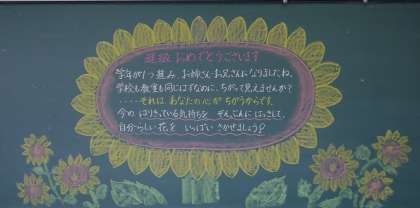 進級 おめでとうございます
学年が1つ進み、お姉さん・お兄さんになりましたね。
学校も教室も同じはずなのに、ちがって見えませんか?
・・・・・それは、あなたの心が ちがうからです。
今の はりきっている気持ちを ぜんぶんに はっきして、
自分らしい花を いっぱい さかせましょう?